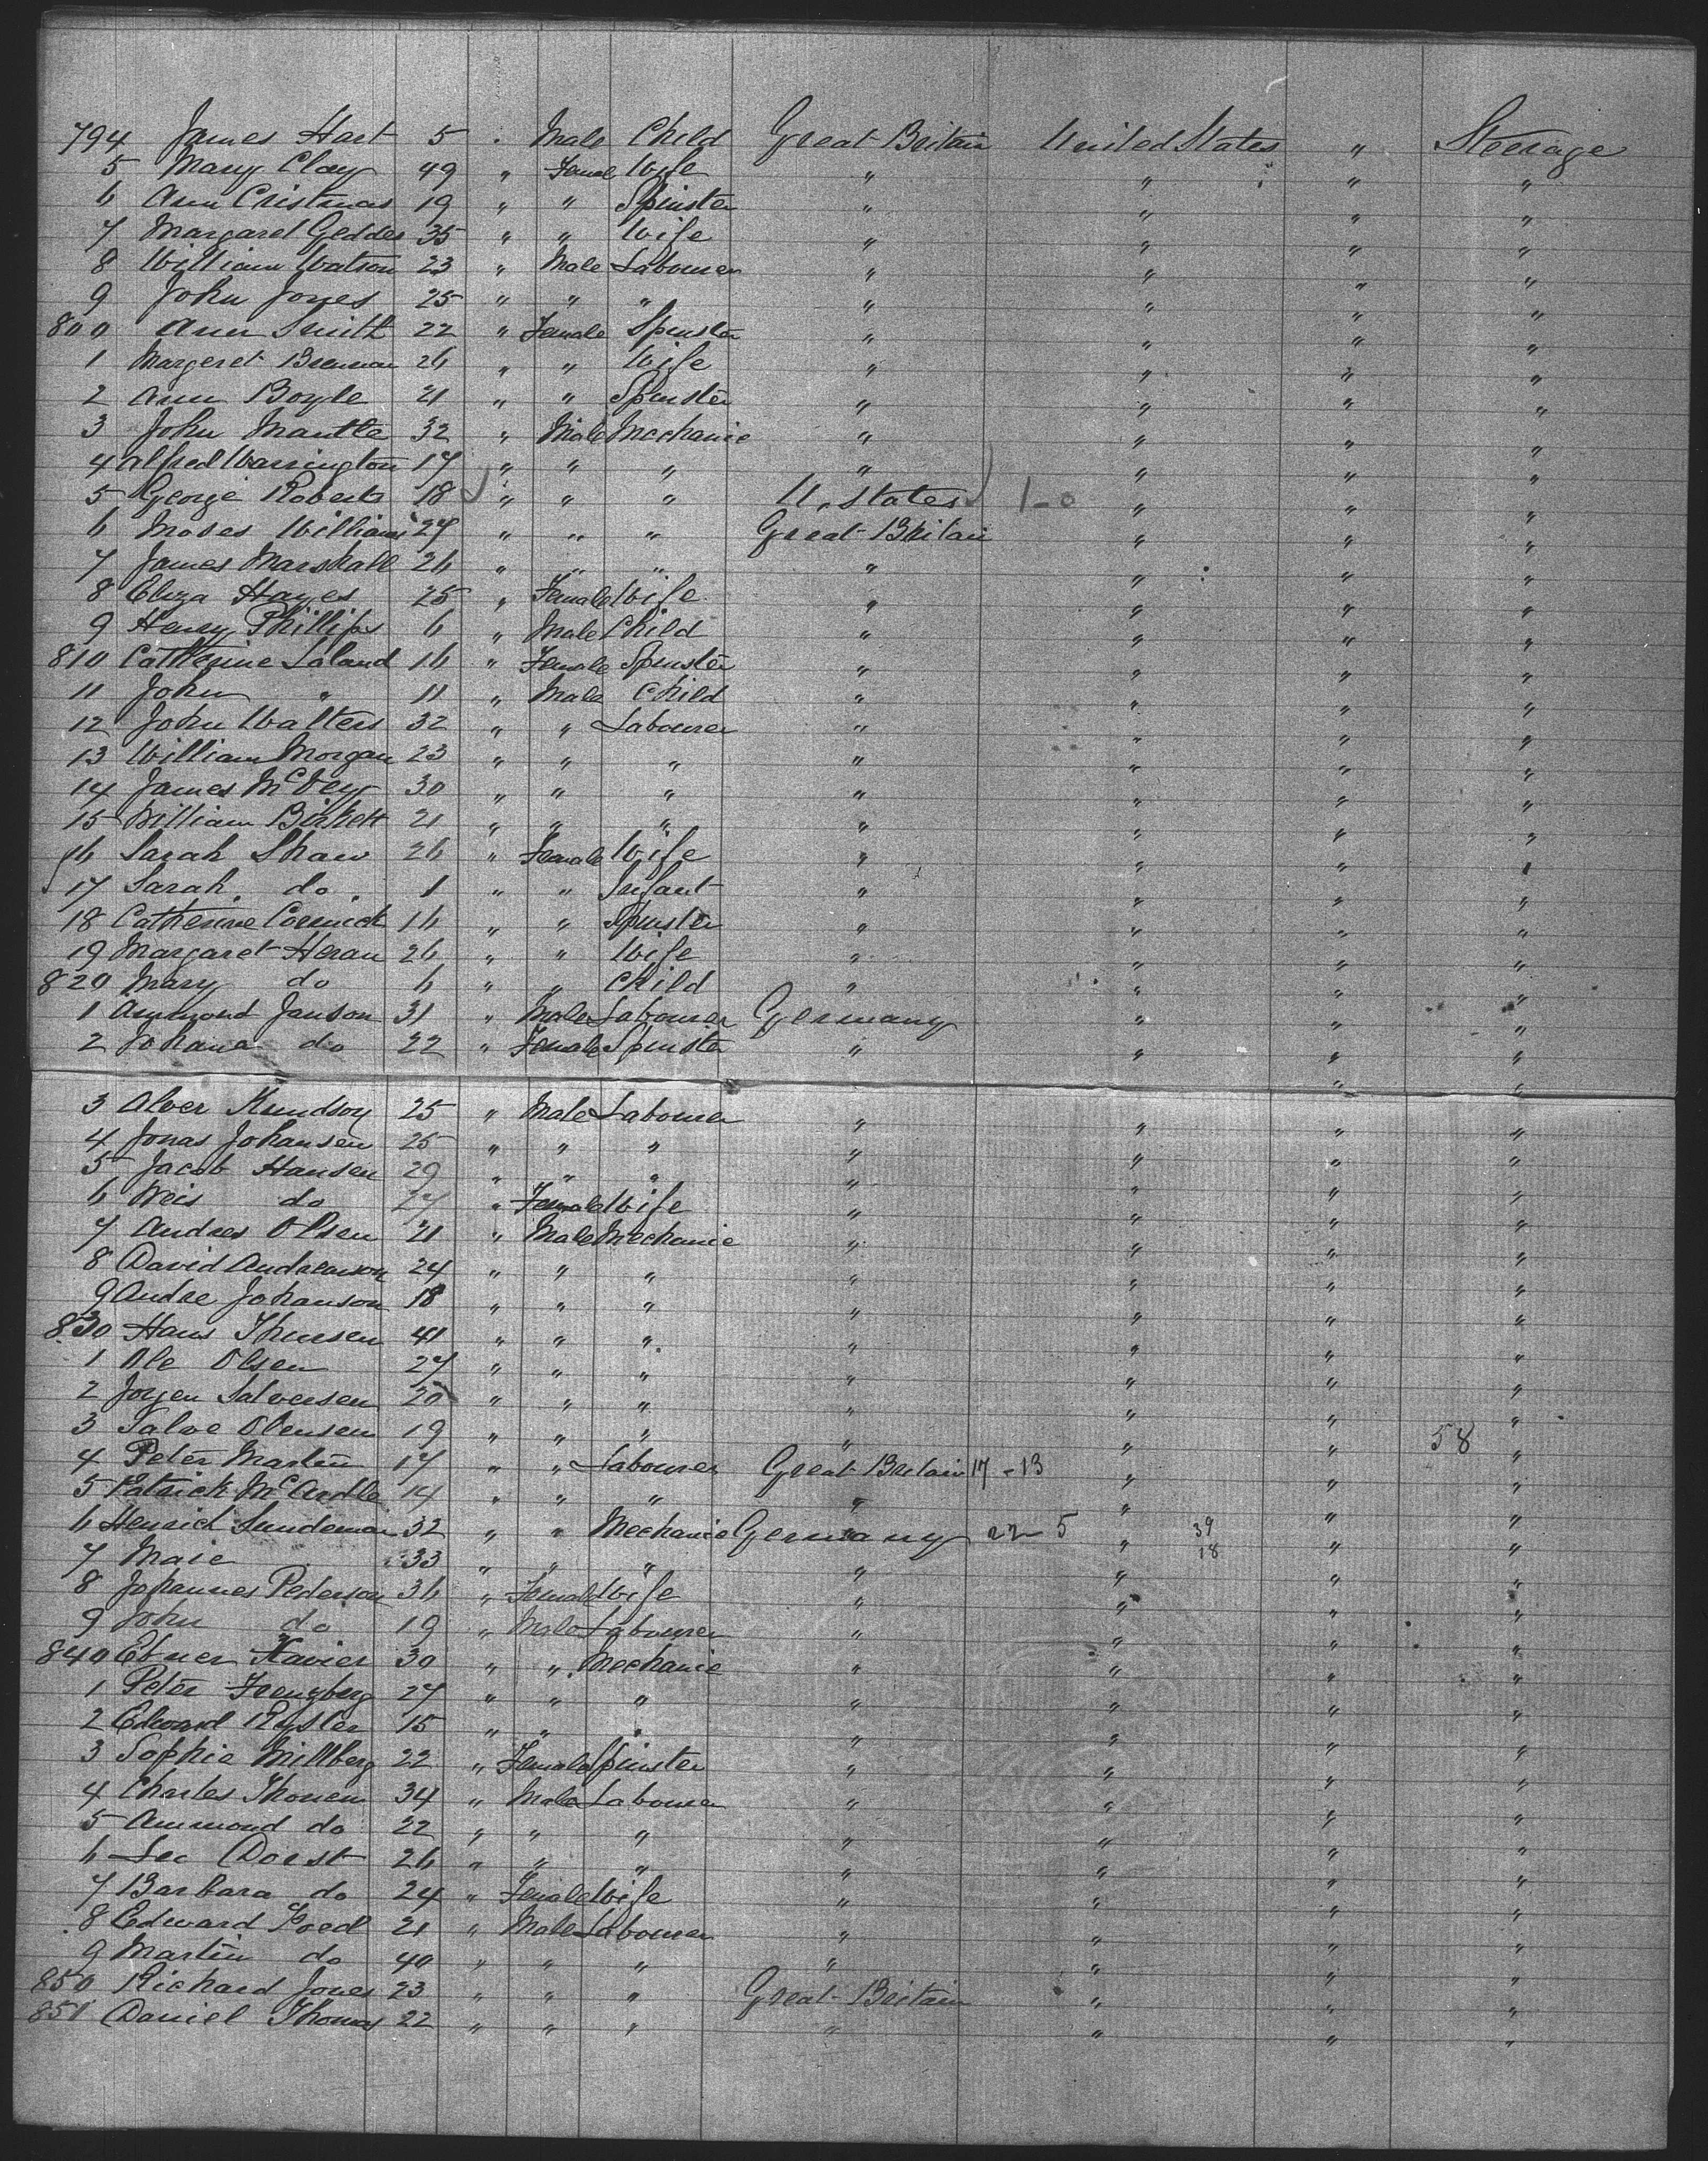 794 James Hart 5 " Male Child Great Britain United States " Steerage
5 Mary Clay 49 " Female Wife " " " "
6 Ann Cristmas 19 " " Spinster " " " "
7 Margaret Geddes 35 " " Wife " " " "
8 William Watson 23 " Male Labourer " " " "
9 John Jones 25 " " " " " " "
800 Ann Smith 22 " Female Spinster " " " "
1 Margeret Brennan 26 " " Wife " " " "
2 Ann Boyle 21 " " Spinster " " " "
3 John Mantle 32 " Male Mechanic " " " "
4 Alfred Warrington 17 " " " " " " "
5 George Roberts 18 " " " U. States 1-0 " " "
6 Moses Williams 27 " " " Great Britain " " "
7 James Marshall 26 " " " " " " "
8 Eliza Hayes 25 " Female Wife " " " "
9 Henry Phillips 6 " Male Child " " " "
810 Catherine Laland 16 " Female Spinster " " " "
11 John " 11 " Male Child " " " "
12 John Walters 32 " " Labourer " " " "
13 William Morgan 23 " " " " " " "
14 James McVey 30 " " " " " " "
15 William Birkett 21 " " " " " " "
16 Sarah Shaw 26 " Female Wife " " " "
17 Sarah do 1 " " Infant " " " "
18 Catherine Cormick 16 " " Spinster " " " "
19 Margaret Heran 26 " " Wife " " " "
820 Mary do 6 " " Child " " " "
1 Ammond Janson 31 " Male Labourer Germany " " "
2 Johana do 22 " Female Spinster " " " "
3 Alver Knudson 25 " Male Labourer " " " "
4 Jonas Johansen 25 " " " " " " "
5 Jacob Hansen 29 " " " " " " "
6 Weis do 27 " Female Wife " " " "
7 Andres Olsen 21 " Male Mechanic " " " "
8 David Andreanson 24 " " " " " " "
9 Andre Johanson 18 " " " " " " "
830 Hans Thursen 41 " " " " " " "
1 Ole Olsen 27 " " " " " " "
2 Jorgen Salversen 20 " " " " " " "
3 Salve Olensen 19 " " " " " " 58 "
4 Peter Martin 17 " " Labourer Great Britain 17-13 " " "
5 Patrick McArdle 14 " " " " " " "
6 Henrich Sundeman 32 " " Mechanic Germany 22-5 " 39 " "
7 Maie 33 " " " " " 18 " "
8 Johannes Pederson 36 " Female Wife " " " "
9 John do 19 " Male Labourer " " " "
840 Ebner Xavier 30 " " Mechanic " " " "
1 Peter Frengberg 27 " " " " " " "
2 Edward Ryster 15 " " " " " " "
3 Sophie Millberg 22 " Female Spinster " " " "
4 Charles Thonem 34 " Male Labourer " " " "
5 Ammond do 22 " " " " " " "
6 Leo Dorst 26 " " " " " " "
7 Barbara do 24 " Female Wife " " " "
8 Edward Poed 21 " Male Labourer " " " "
9 Martin do 40 " " " " " " "
850 Richard Jones 23 " " " Great Britain " " "
851 Daniel Thomas 22 " " " " " " "